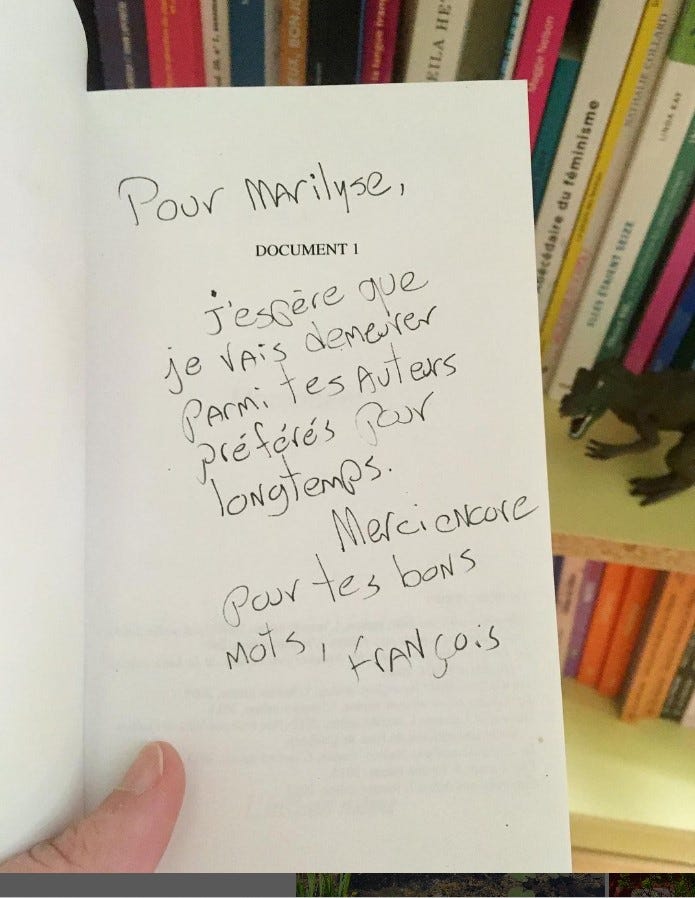 la langue franç
EILA HE
Maggie Nelson
écédaire du féminisme
NATHALIE COLLARD
LINDA KAY
ELLES ÉTAIENT SEIZE
Pour Marilyse,
DOCUMENT 1
j'espère que
je vais demeurer
parmi tes auteurs
préférés pour
longtemps.
Merci encore
pour tes bons
mots, François